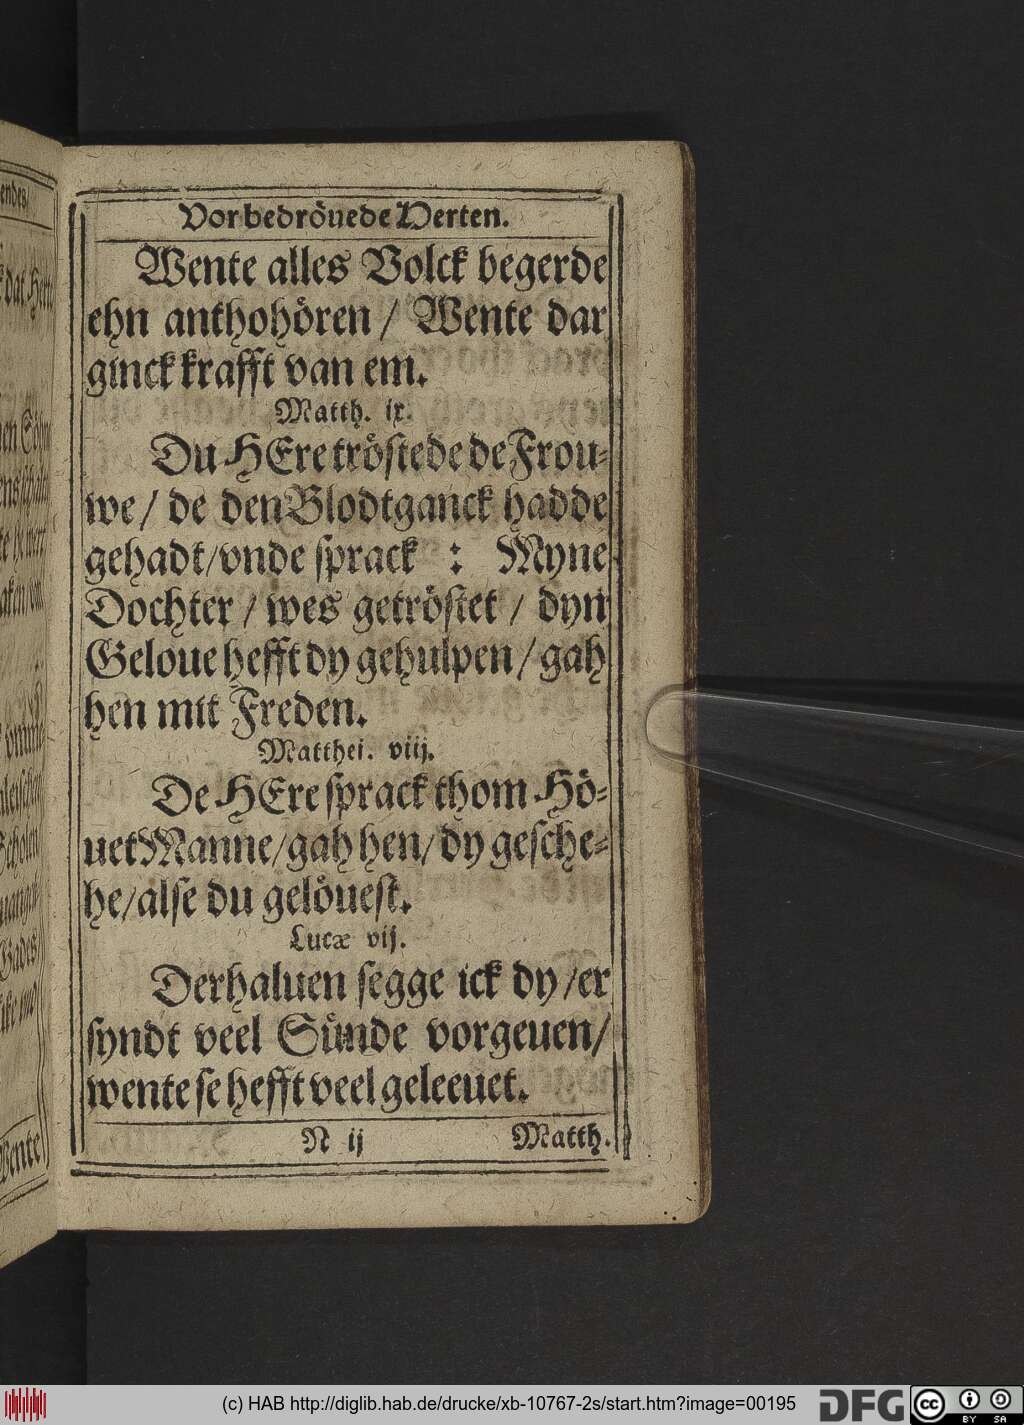 Vor bedröuede Herten.
Wente alles Volck begerde
ehn anthohören / Wente dar
ginck krafft van em.
Matth. ix.
Du HEre tröstede de Frou-
we / de den Blodtganck hadde
gehadt/vnde sprack : Myne
Dochter / wes getröstet / dyn
Geloue hefft dy gehulpen / gah
hen mit Freden.
Matthei. viij.
De HEre sprack thom Hö-
uet Manne/gah hen/ dy gesche-
he/alse du gelöuest.
Lucæ vij.
Derhaluen segge ick dy /er
syndt veel Sünde vorgeuen/
wente se hefft veel geleeuet.
N ij Matth.
endes/
Wente
(c) HAB http://diglib.hab.de/drucke/xb-10767-2s/start.htm?image=00195
DFG
cc BY SA